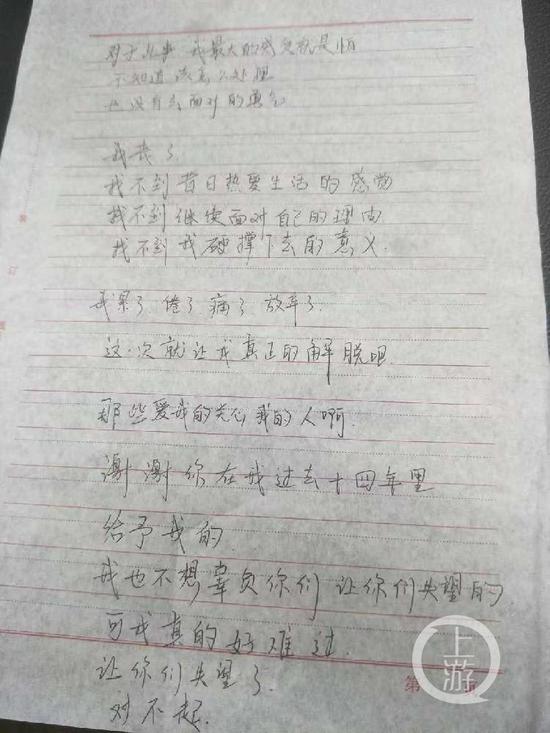 对于此事 我最大的感觉就是怕
不知道该怎么处理
也没有去面对的勇气
我哉了
找不到昔日热爱生活的感觉
找不到继续面对自己的理由
找不到我硬撑下去的意义.
我累了 倦了 痛了 放弃了.
这一次就让我真正的解脱吧.
那些爱我的关心我的人啊.
谢谢你在我过去十四年里
给予我的.
我也不想辜负你们 让你们失望的
可我真的好难过.
让你们失望了.
对不起.
第 页
上游